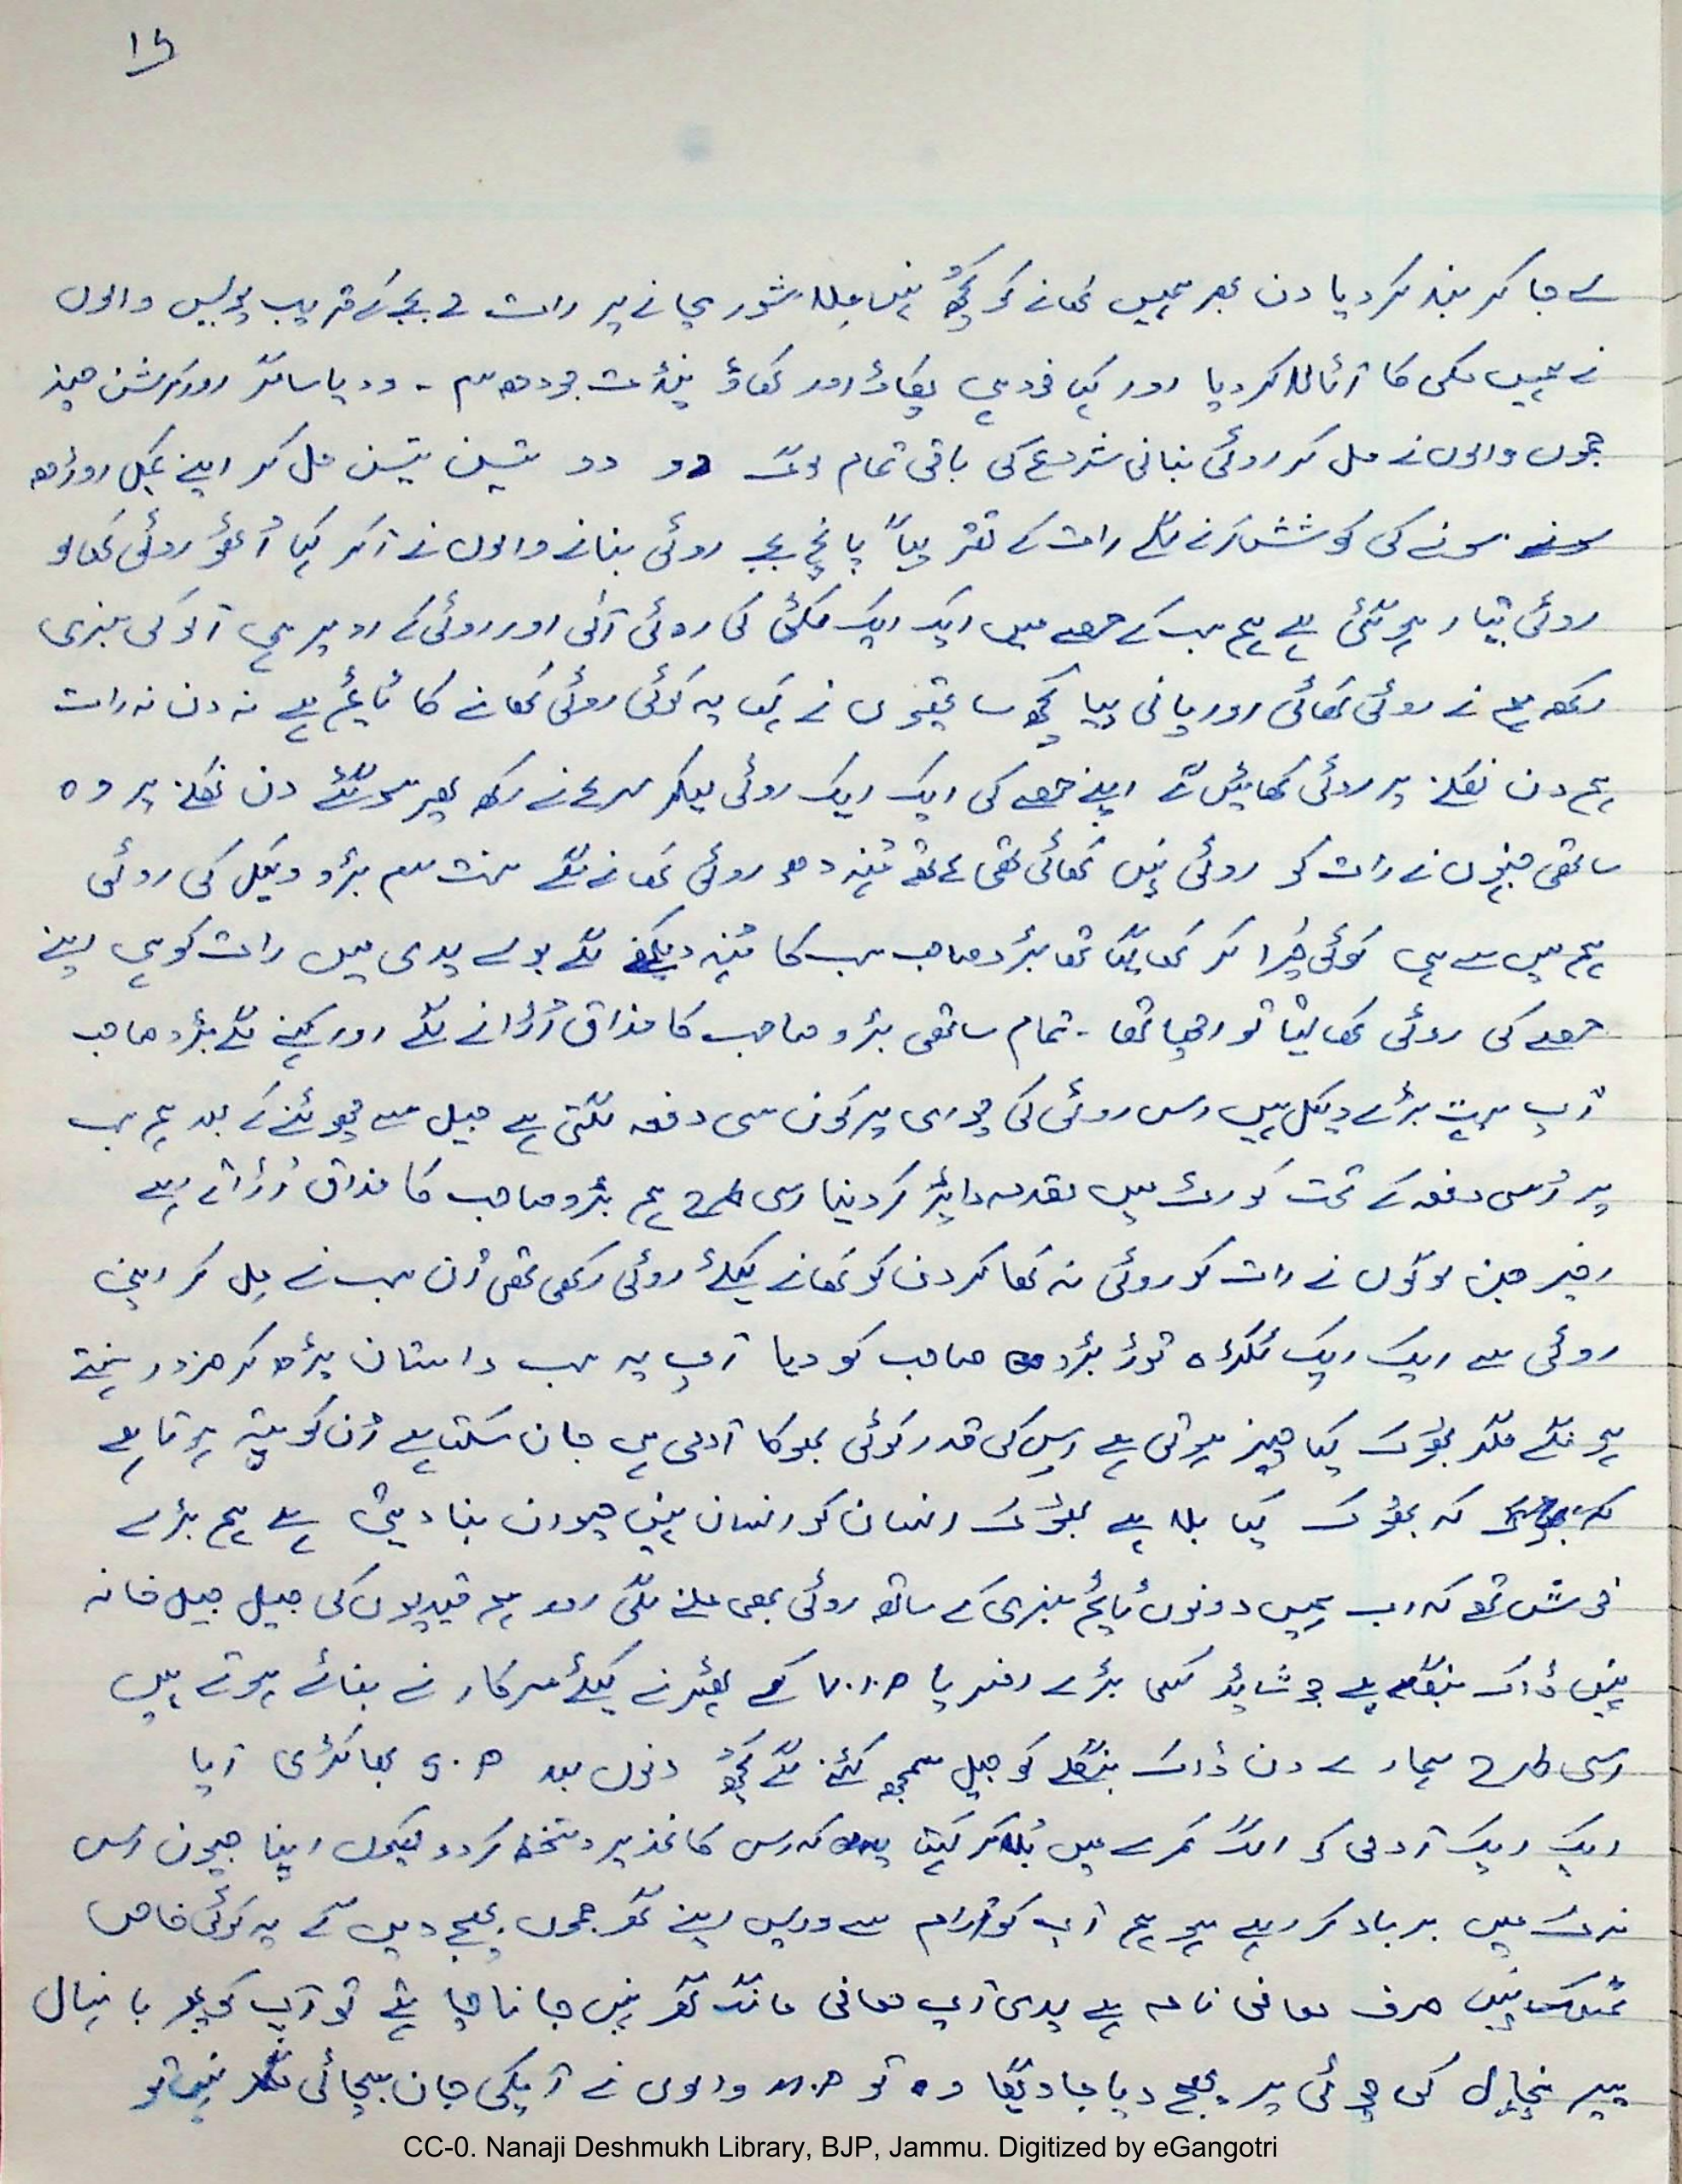 15
لے جا کر بند کر دیا دن بھر ہمیں کھانے کو کچھ نہیں ملا شور مچانے پر رات بجے کے قریب پولیس والوں
نے ہمیں مکی کا آٹا لا کر دیا اور کہا خود ہی پکاؤ اور کھاؤ پنڈت ودیا ساگر اور کرشن
جموں والوں نے مل کر روٹی بنانی شروع کی باقی تمام لوگ دو دو تین تین مل کر اپنے کمبل اوڑھ
سونے کی کوشش کرنے لگے رات کے تقریباً پانچ بجے روٹی بنانے والوں نے آکر کہا اُٹھو روٹی کھا لو
روٹی تیار ہو گئی ہے ہم سب کے حصے میں ایک ایک مکئی کی روٹی آئی اور روٹی کے اوپر ہی آلو کی سبزی
رکھ ہم نے روٹی کھائی اور پانی پیا کچھ ساتھیوں نے کہا یہ کوئی روٹی کھانے کا ٹائم ہے نہ دن نہ رات
ہم دن نکلنے پر روٹی کھائیں گے اپنے حصے کی ایک ایک روٹی لیکر سرہانے رکھ پھر سو گئے دن نکلنے پر وہ
ساتھی جنہوں نے رات کو روٹی نہیں کھائی تھی اُٹھے مُنہ دھو روٹی کھانے لگے بڑو وکیل کی روٹی
ہم میں سے ہی کوئی چُرا کر کھا گیا تھا بڑو صاحب سب کا مُنہ دیکھنے لگے بولے یدی میں رات کو ہی اپنے
حصے کی روٹی کھا لیتا تو اچھا تھا - تمام ساتھی بڑو صاحب کا مذاق اُڑانے لگے اور کہنے لگے بڑو صاحب
آپ بہت بڑے وکیل ہیں اس روٹی کی چوری پر کون سی دفعہ لگتی ہے جیل سے چھوٹنے کے بعد ہم سب
پر اُسی دفعہ کے تحت کورٹ میں مقدمہ دائر کر دینا اسی طرح ہم بڑو صاحب کا مذاق اُڑاتے رہے
اخیر جن لوگوں نے رات کو روٹی نہ کھا کر دن کو کھانے کیلئے روٹی رکھی تھی اُن سب نے مل کر اپنی
روٹی سے ایک ایک ٹکڑہ توڑ بڑو صاحب کو دیا آپ یہ سب داستان پڑھ کر ضرور ہنستے
ہو نگے مگر بھوک کیا چیز ہوتی ہے اس کی قدر کوئی بھوکا آدمی ہی جان سکتا ہے اُن کو پتہ ہوتا ہے
کہ بھوک کیا بلا ہے بھوک انسان کو انسان نہیں حیوان بنا دیتی ہے ہم بڑے
خوش تھے کہ اب ہمیں دونوں ٹائم سبزی کے ساتھ روٹی بھی ملنے لگی اور ہم قیدیوں کی جیل جیل خانہ
نہیں ڈاک بنگلہ ہے جو شائد کسی بڑے افسر یا V.I.P کے ٹھہرنے کیلئے سرکار نے بنائے ہوتے ہیں
اسی طرح ہمارے دن ڈاک بنگلے کو جیل سمجھ کٹنے لگے کچھ دنوں بعد S.P بھاکڑی آیا
ایک ایک آدمی کو الگ کمرے میں بُلا کر کہتا کہ اس کاغذ پر دستخط کر دو کیوں اپنا جیون اس
نرک میں برباد کر رہے ہو ہم آپ کو آرام سے واپس اپنے گھر جموں بھیج دیں گے یہ کوئی خاص
نہیں صرف معافی نامہ ہے یدی آپ معافی مانگ گھر نہیں جانا چاہتے تو آپ کو پھر بانہال
پیر پنچال کی چوٹی پر بھیج دیا جاویگا وہ تو والوں نے آپکی جان بچائی نہیں تو
CC-0. Nanaji Deshmukh Library, BJP, Jammu. Digitized by eGangotri